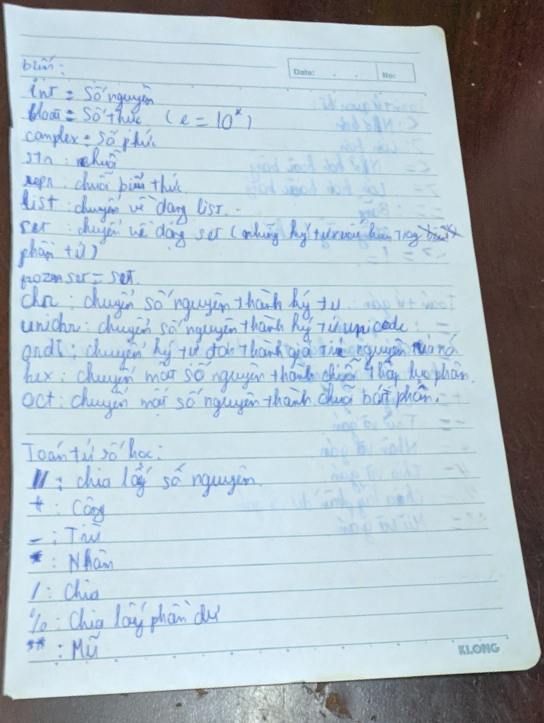 biến:
Date: . . No:
int = Số nguyên
float = Số thực ( e = 10ˣ )
complex = Số phức
str : chuỗi
repr : chuỗi biểu thức.
list : chuyển về dạng list.
set : chuyển về dạng set (những ký tự xuất hiện trong
phần tử)
frozenset = set.
chr : chuyển số nguyên thành ký tự
unichr : chuyển số nguyên thành ký tự unicode
ord : chuyển ký tự đơn thành giá trị nguyên của nó
hex : chuyển một số nguyên thành chuỗi thập lục phân.
oct : chuyển một số nguyên thành chuỗi bát phân.
Toán tử số học:
// : chia lấy số nguyên.
+ : Cộng
- : Trừ
* : Nhân
/ : Chia
% : Chia lấy phần dư
** : Mũ
KLONG